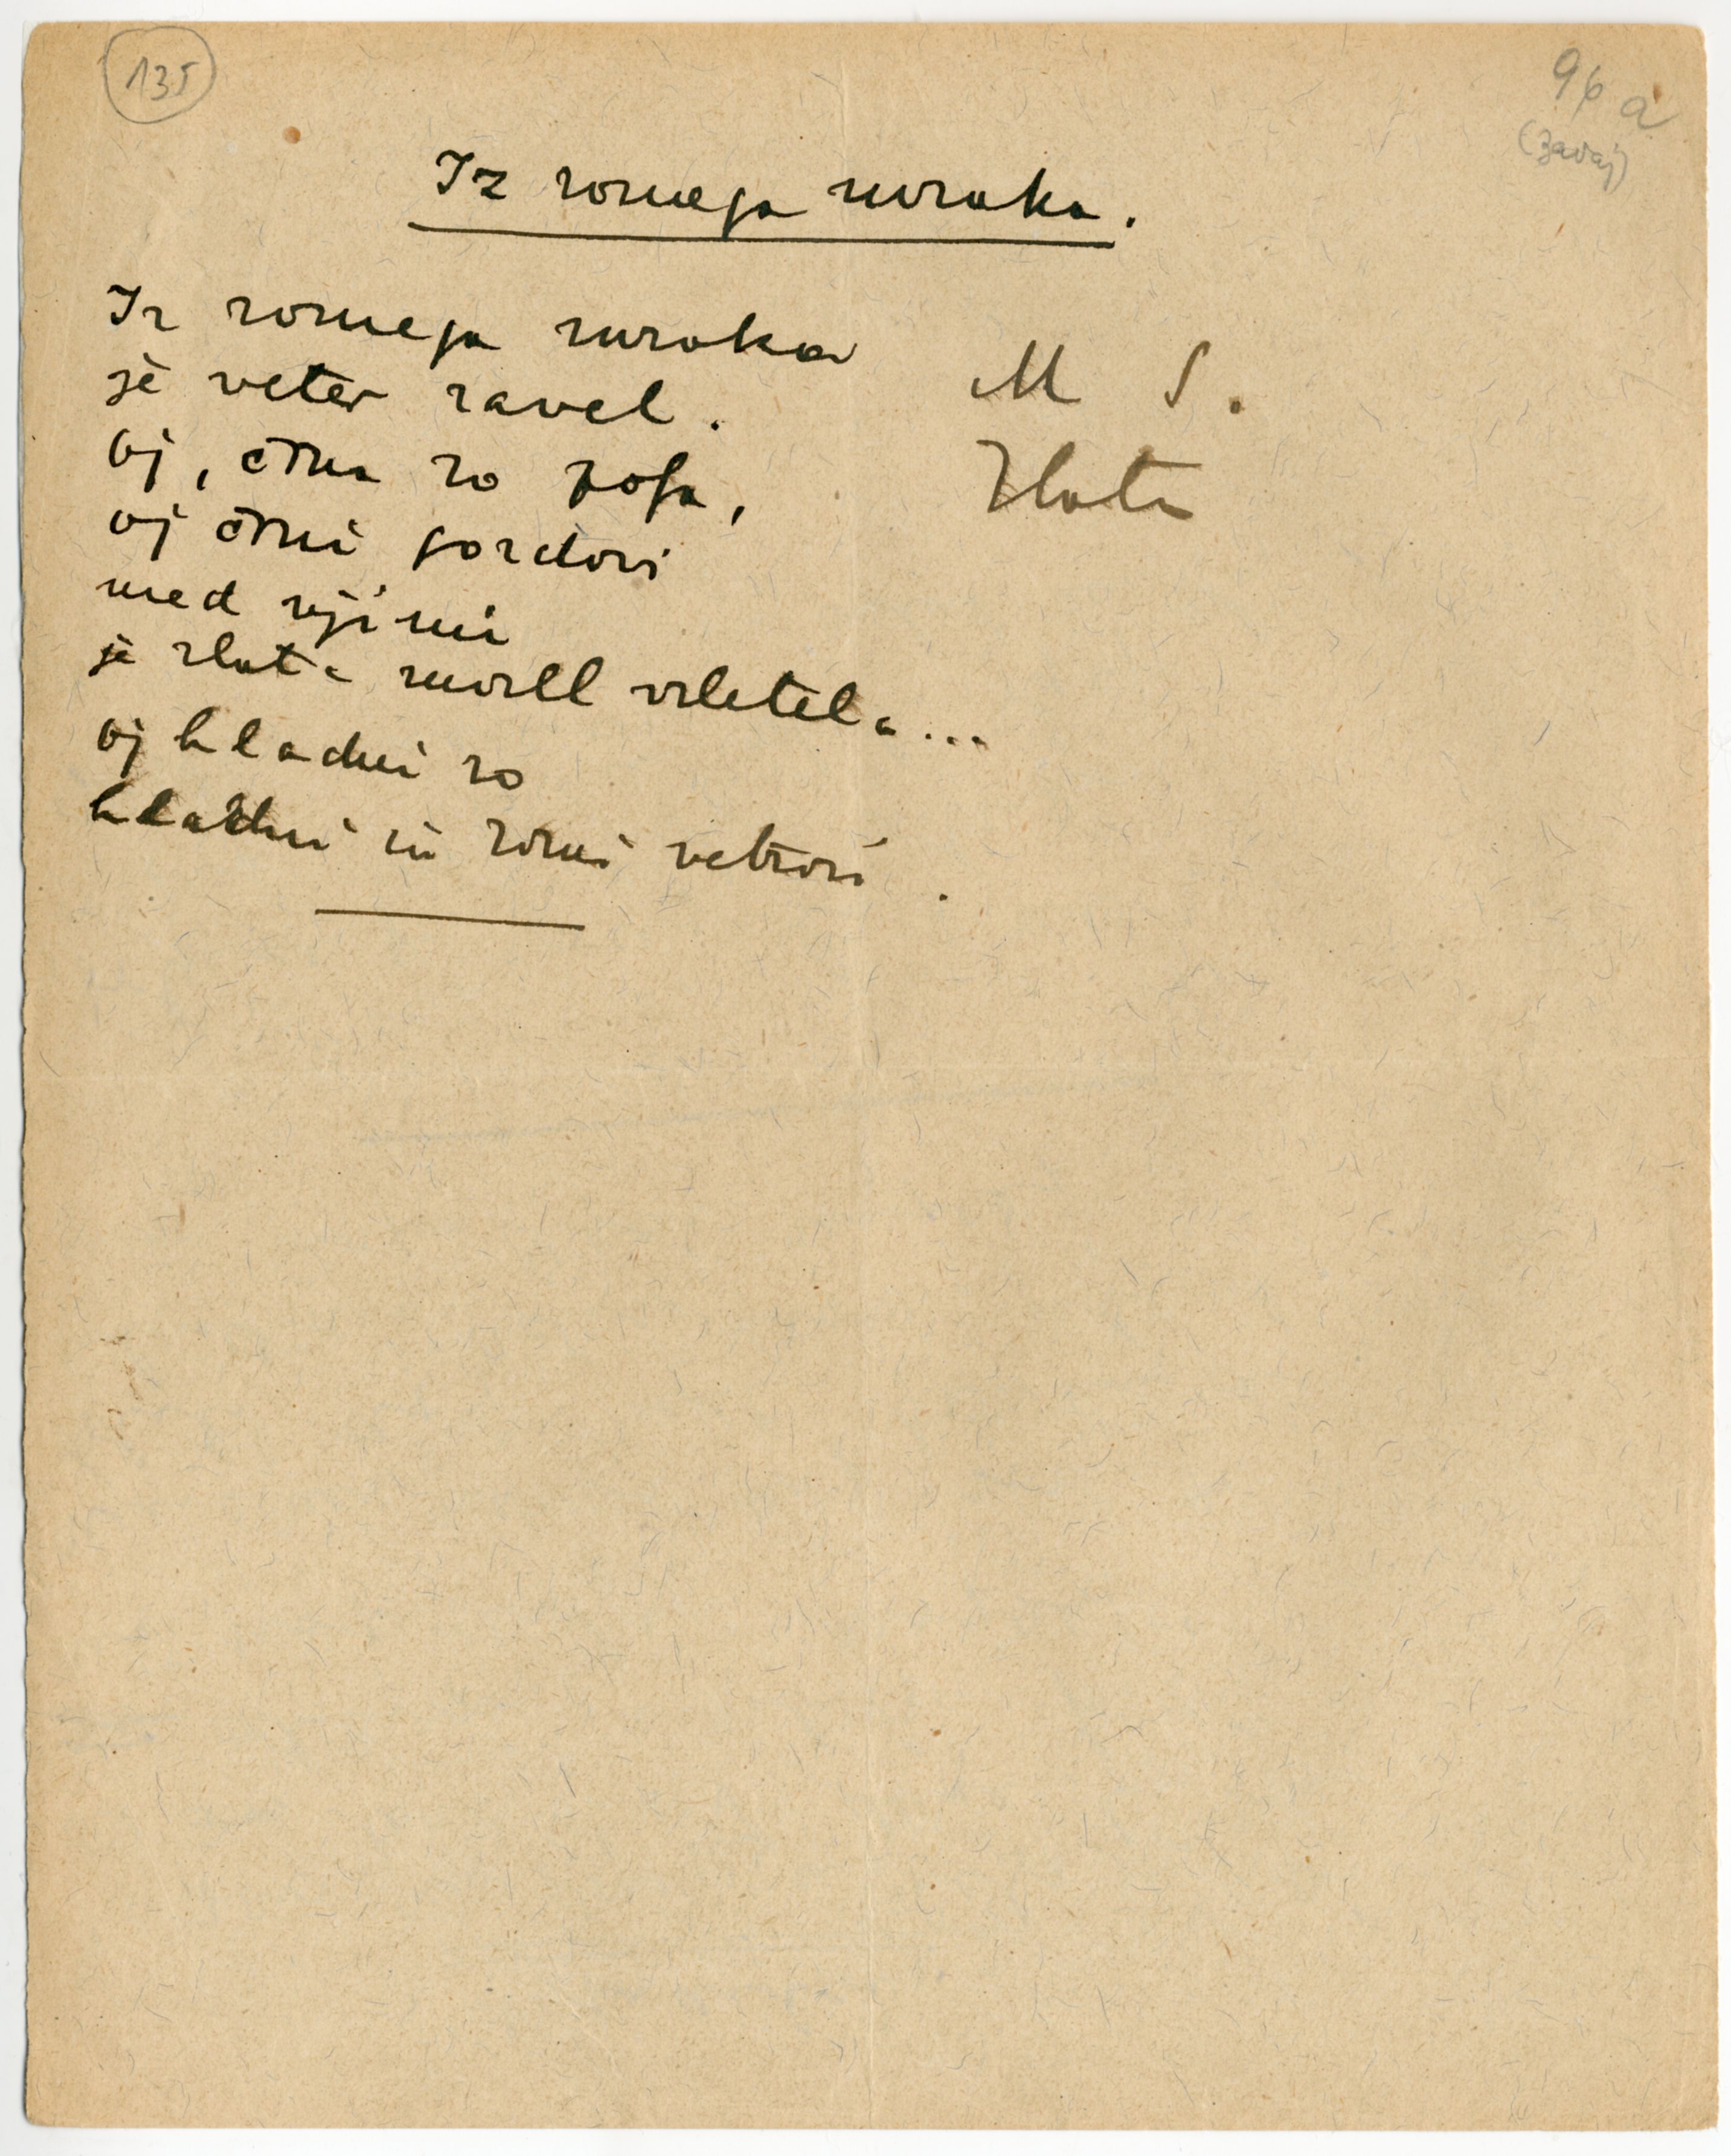 135
96 a
(zadaj)
Iz zornega mraka.
Iz zornega mraka
je veter zavel.
Oj, črna so polja,
oj črni gozdovi
med njimi
je zlata misel vzletela...
Oj hladni so
hladni in zorni vetrovi.
M S.
Zlata